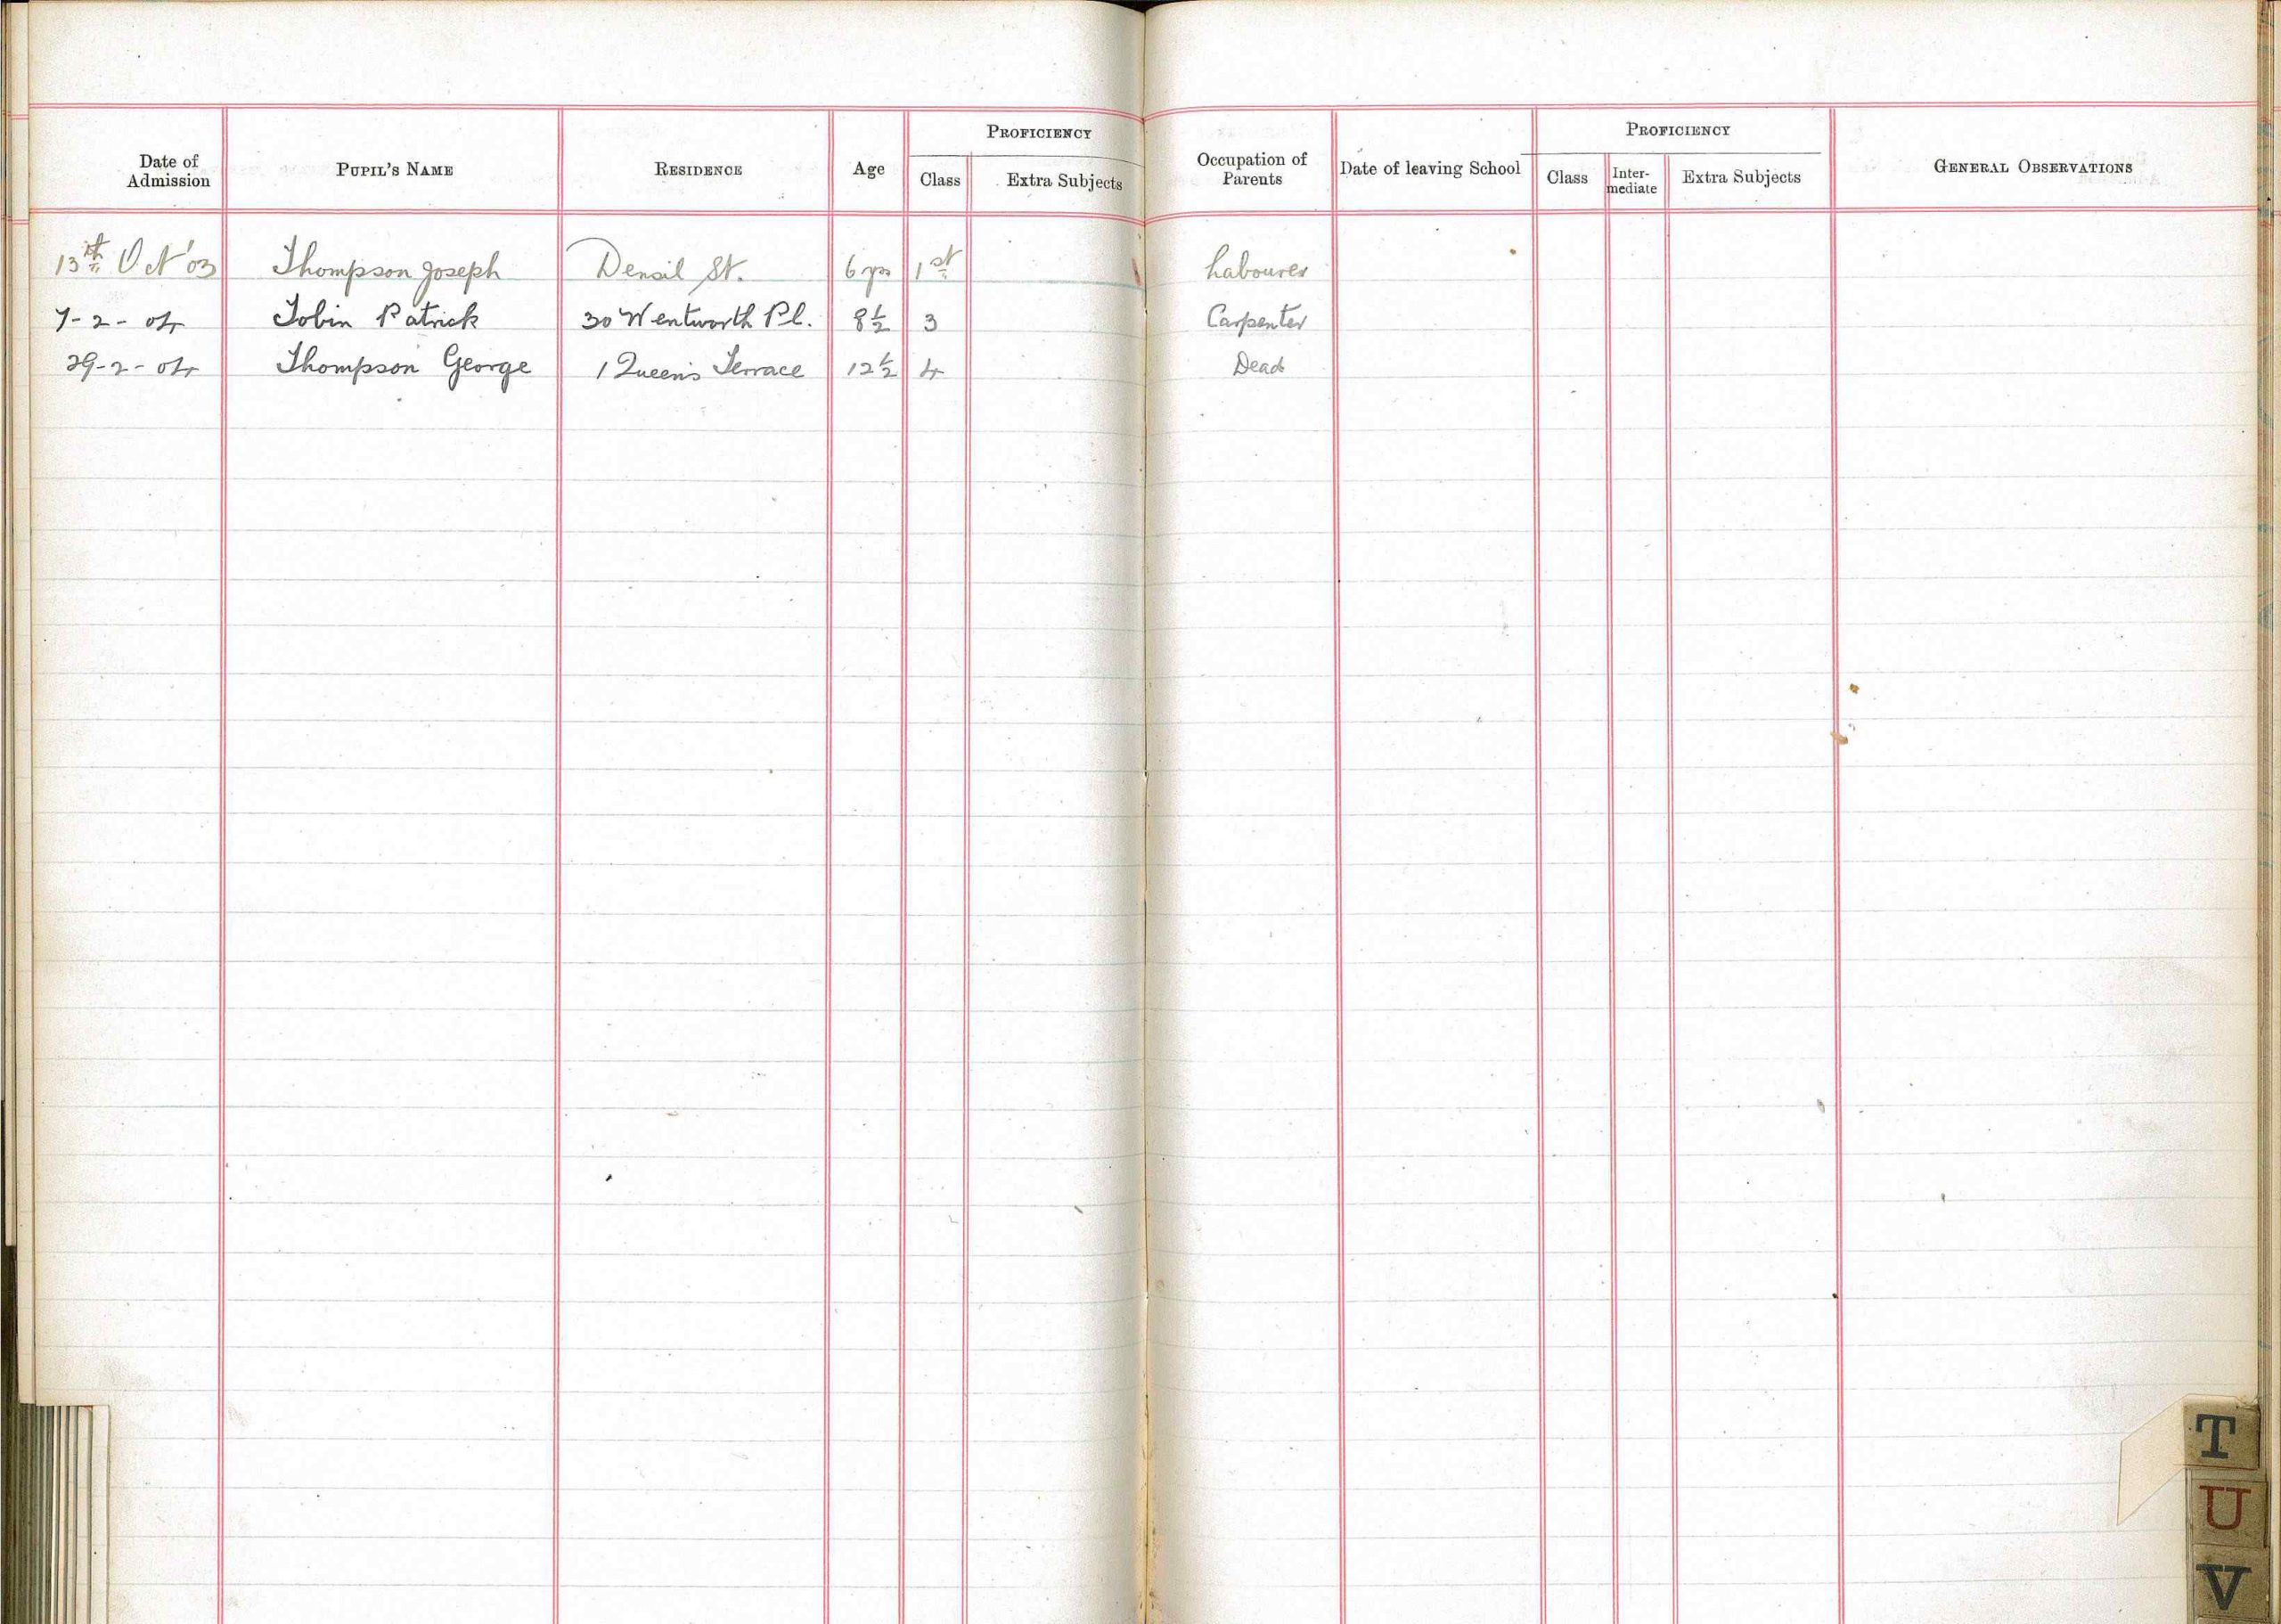 PROFICIENCY
Date of Admission PUPIL'S NAME RESIDENCE Age Class Extra Subjects
Occupation of Parents Date of leaving School PROFICIENCY Class Inter-mediate Extra Subjects GENERAL OBSERVATIONS
13th Oct '03 Thompson Joseph Denzil St. 6 yrs 1st Labourer
7-2-04 Tobin Patrick 30 Wentworth Pl. 8½ 3 Carpenter
29-2-04 Thompson George 1 Queen's Terrace 12½ 4 Dead
T
U
V